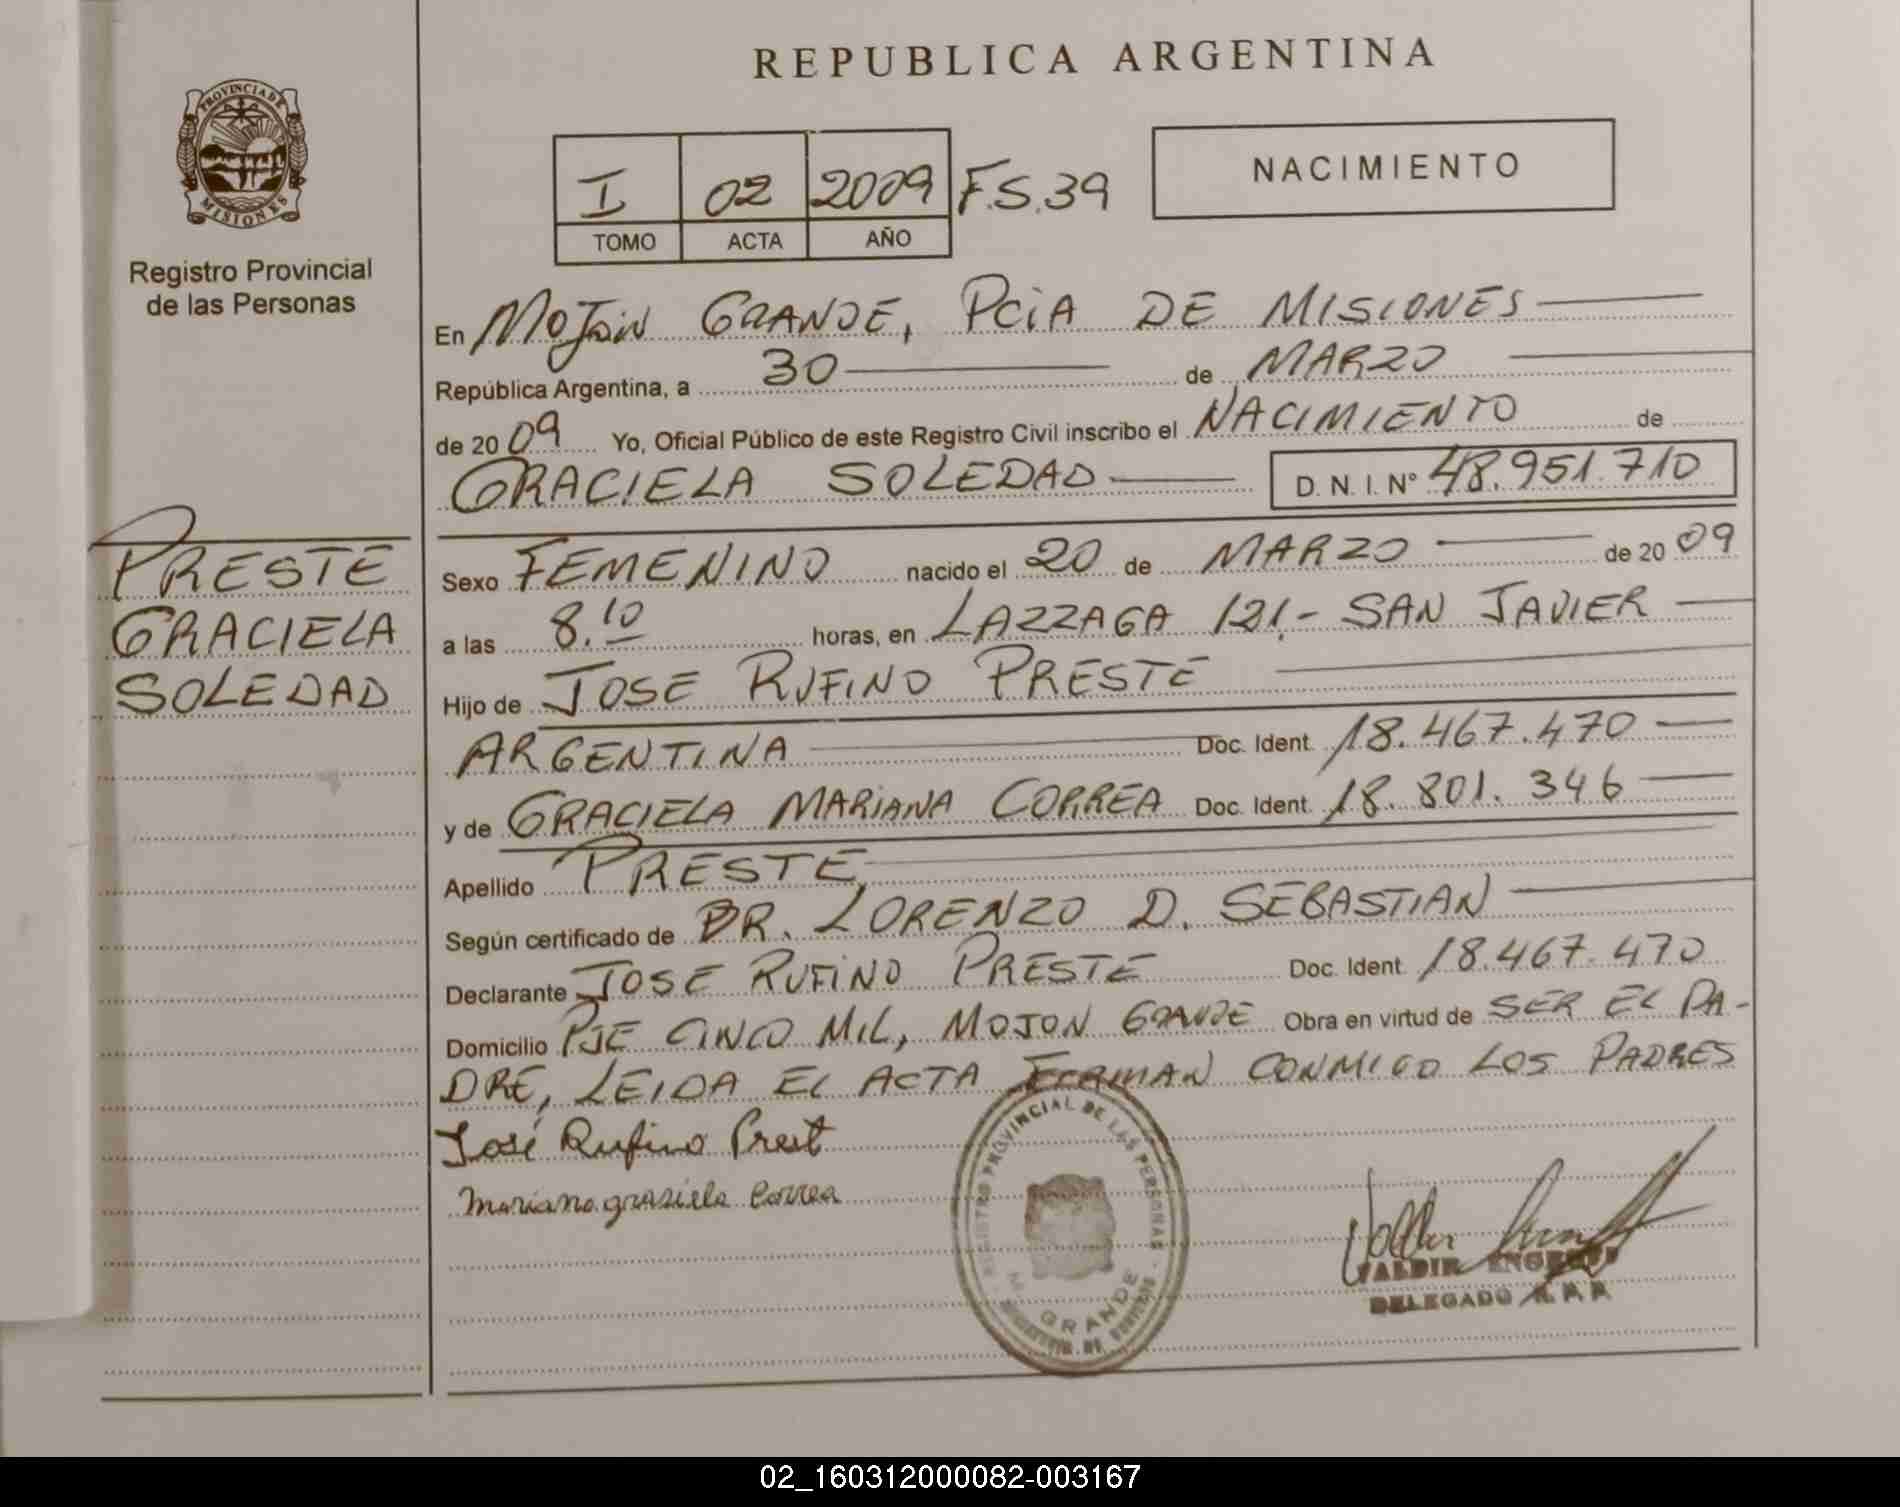 REPUBLICA ARGENTINA
PROVINCIA DE
MISIONES
Registro Provincial
de las Personas
I 02 2009 F.S.39
TOMO ACTA AÑO
NACIMIENTO
En MOJON GRANDE, PCIA DE MISIONES
República Argentina, a 30 de MARZO
de 2009 Yo, Oficial Público de este Registro Civil inscribo el NACIMIENTO de
GRACIELA SOLEDAD D. N. I. Nº 48.951.710
PRESTE
GRACIELA
SOLEDAD
Sexo FEMENINO nacido el 20 de MARZO de 2009
a las 8.10 horas, en LAZZAGA 121.- SAN JAVIER
Hijo de JOSE RUFINO PRESTE
ARGENTINA Doc. Ident. 18.467.470
y de GRACIELA MARIANA CORREA Doc. Ident. 18.801.346
Apellido PRESTE,
Según certificado de DR. LORENZO D. SEBASTIAN
Declarante JOSE RUFINO PRESTE Doc. Ident. 18.467.470
Domicilio PJE CINCO MIL, MOJON GRANDE Obra en virtud de SER EL PA-
DRE, LEIDA EL ACTA FIRMAN CONMIGO LOS PADRES
José Rufino Prest
Mariana grasiela Correa
REGISTRO PROVINCIAL DE LAS PERSONAS
M. GRANDE
VALDIR
DELEGADO R.P.P.
02_160312000082-003167